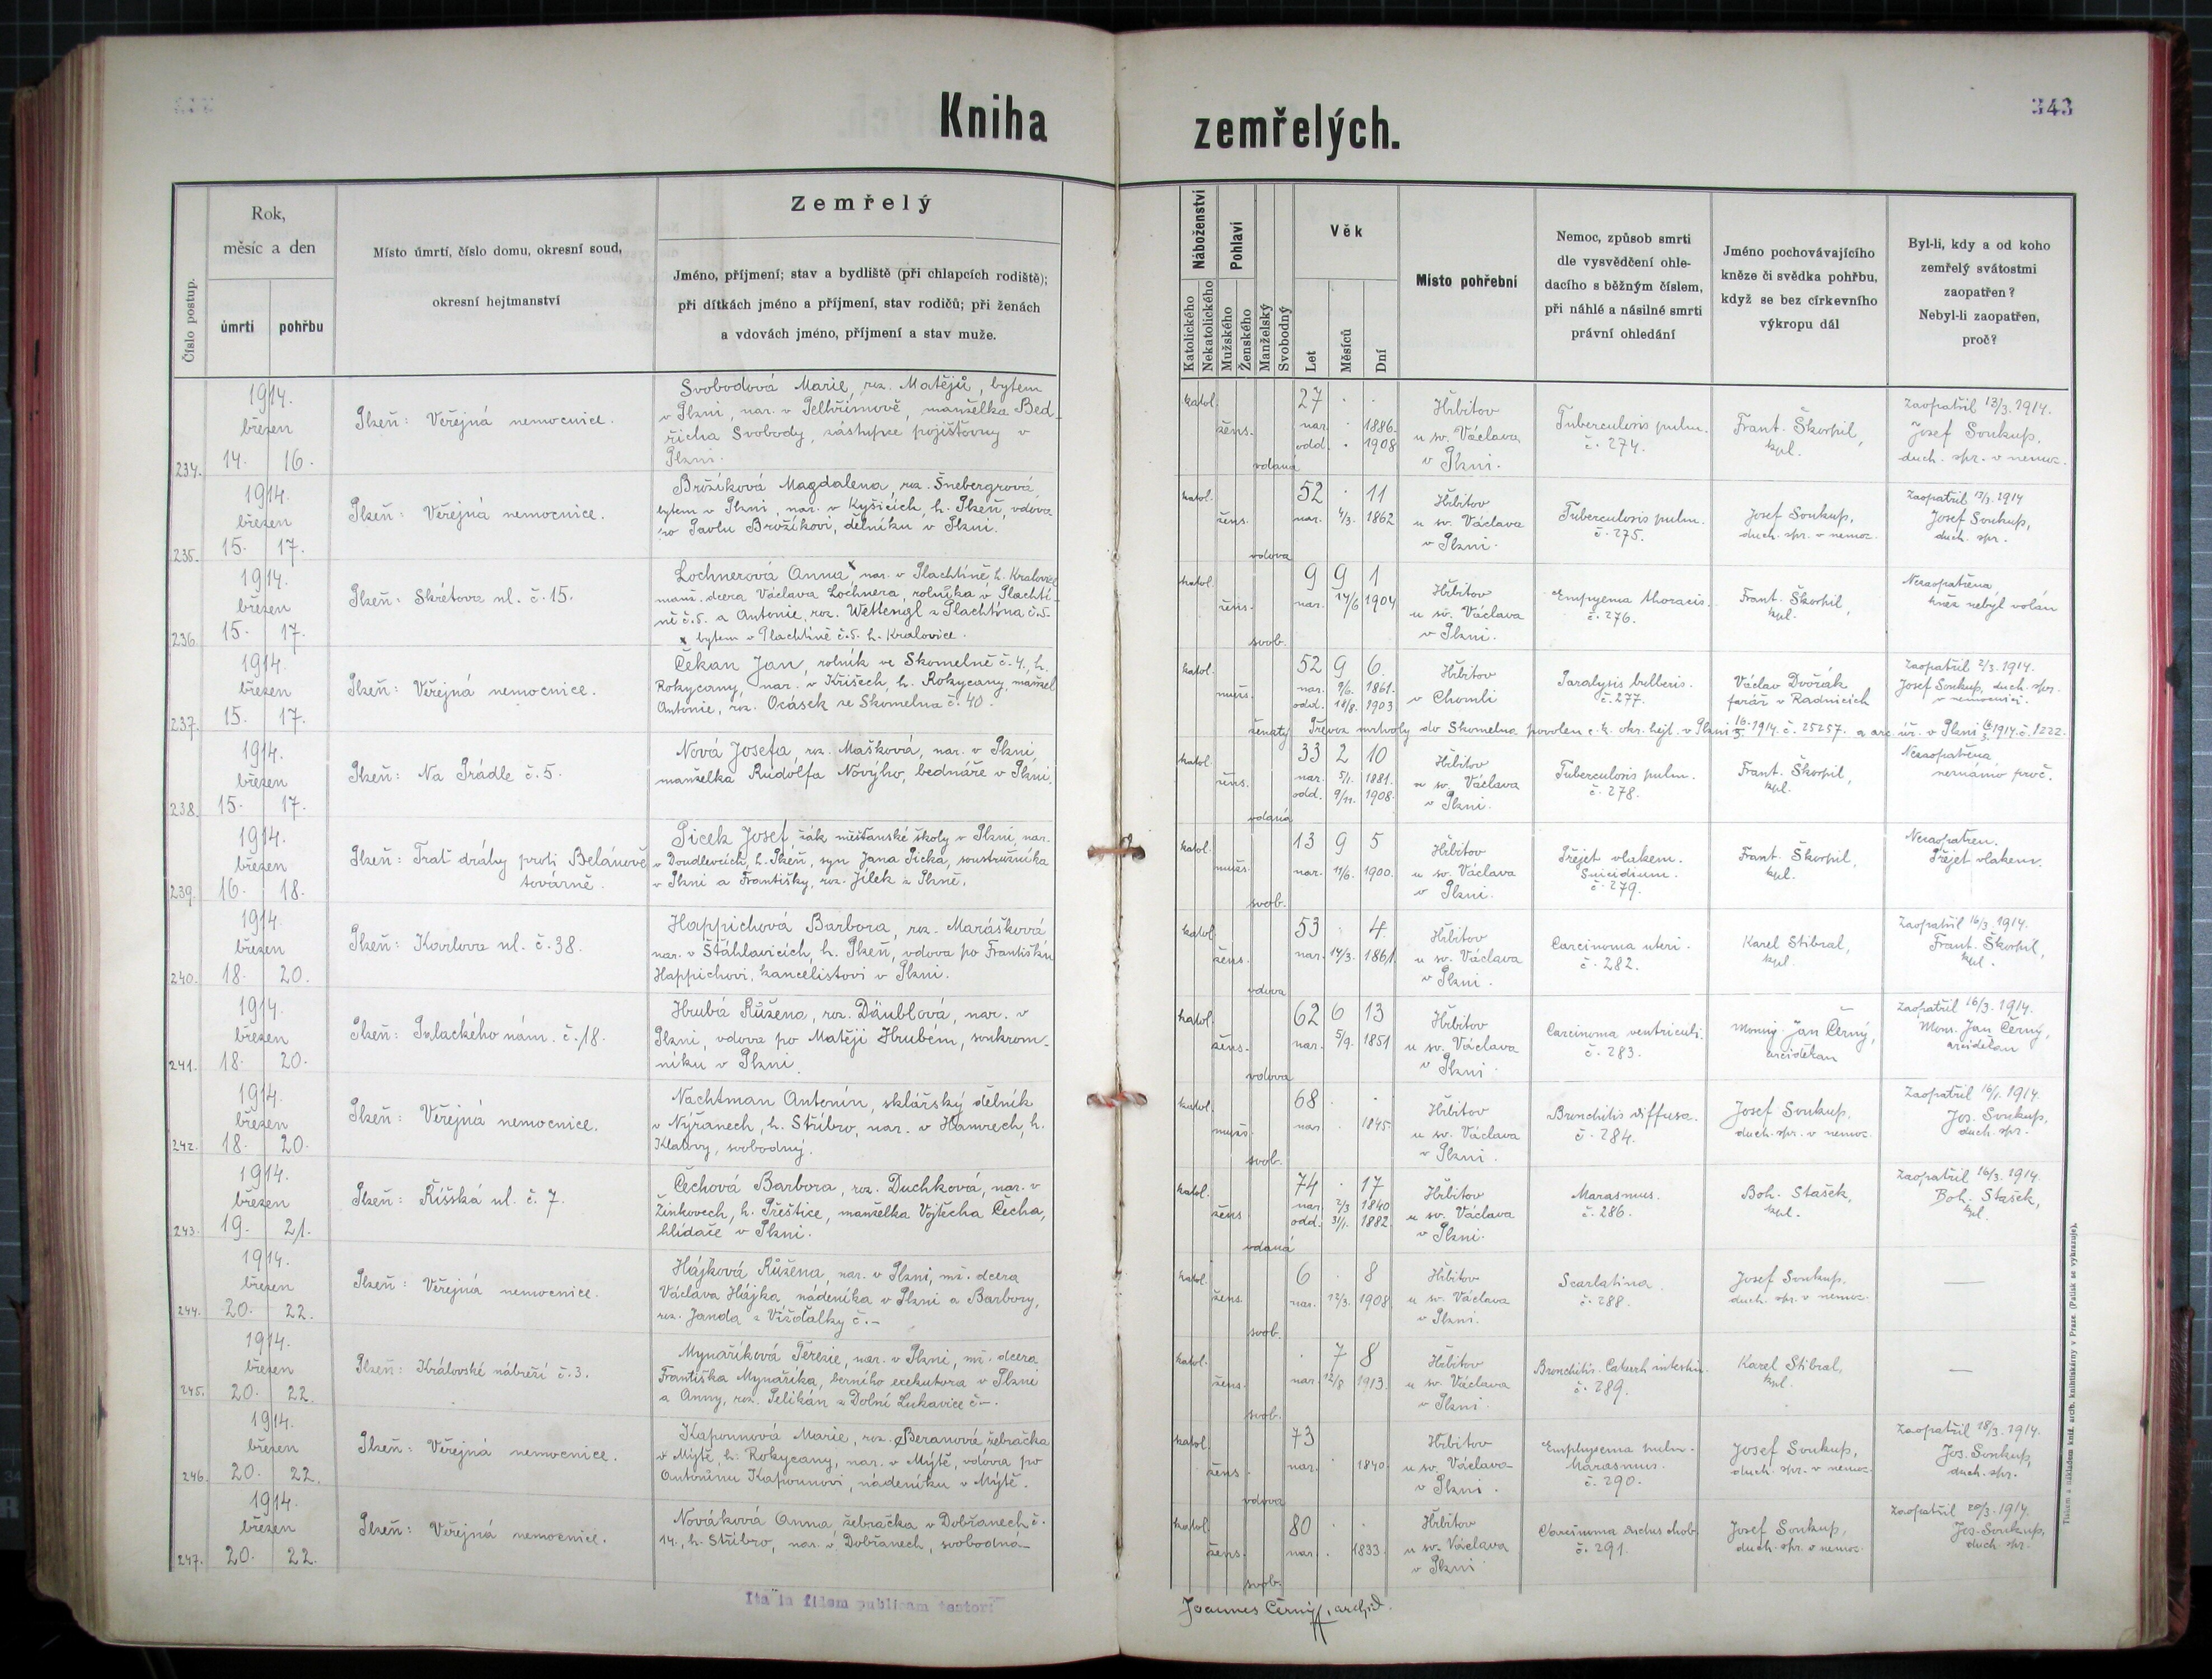 Kniha
zemřelých.
343
Číslo postup.
Rok,
měsíc a den
úmrtí
pohřbu
Místo úmrtí, číslo domu, okresní soud,
okresní hejtmanství
Zemřelý
Jméno, příjmení; stav a bydliště (při chlapcích rodiště);
při dítkách jméno a příjmení, stav rodičů; při ženách
a vdovách jméno, příjmení a stav muže.
Náboženství
Katolického
Nekatolického
Pohlaví
Mužského
Ženského
Manželský
Svobodný
Věk
Let
Měsíců
Dní
Místo pohřební
Nemoc, způsob smrti
dle vysvědčení ohle-
dacího s běžným číslem,
při náhlé a násilné smrti
právní ohledání
Jméno pochovávajícího
kněze či svědka pohřbu,
když se bez církevního
výkropu dál
Byl-li, kdy a od koho
zemřelý svátostmi
zaopatřen?
Nebyl-li zaopatřen,
proč?
234.
1914.
březen
14. 16.
Plzeň: Veřejná nemocnice.
Svobodová Marie, roz. Matějů, bytem
v Plzni, nar. v Pelhřimově, manželka Bed-
řicha Svobody, zástupce pojišťovny v
Plzni.
katol.
žens.
vdaná
27 . .
nar. . 1886.
odd. . 1908
Hřbitov
u sv. Václava
v Plzni.
Tuberculosis pulm.
č. 274.
Frant. Škorpil,
kpl.
Zaopatřil 13/3. 1914.
Josef Soukup,
duch. spr. v nemoc.
235.
1914.
březen
15. 17.
Plzeň: Veřejná nemocnice.
Brožíková Magdalena, roz. Šnebergrová,
bytem v Plzni, nar. v Kyšicích, h. Plzeň, vdova
po Pavlu Brožíkovi, dělníku v Plzni.
katol.
žens.
vdova
52 . 11
nar. 4/3. 1862
Hřbitov
u sv. Václava
v Plzni.
Tuberculosis pulm.
č. 275.
Josef Soukup,
duch. spr. v nemoc.
Zaopatřil 13/3. 1914
Josef Soukup,
duch. spr.
236.
1914.
březen
15. 17.
Plzeň: Skrétova ul. č. 15.
Lochnerová Anna x, nar. v Plachtíně, h. Kralovice
manž. dcera Václava Lochnera, rolníka v Plachtí-
ně č. 5. a Antonie, roz. Wettengl z Plachtína č. 5.
x bytem v Plachtíně č. 5. h. Kralovice.
katol.
žens.
svob.
9 9 1
nar. 14/6 1904
Hřbitov
u sv. Václava
v Plzni.
Empyema thoracis.
č. 276.
Frant. Škorpil,
kpl.
Nezaopatřena
kněz nebyl volán
237.
1914.
březen
15. 17.
Plzeň: Veřejná nemocnice.
Čekan Jan, rolník ve Skomelně č. 4., h.
Rokycany, nar. v Křišech, h. Rokycany, manžel
Antonie, roz. Ocásek ze Skomelna č. 40.
katol.
mužs.
ženatý
52 9 6
nar. 9/6. 1861.
odd. 18/8. 1903
Hřbitov
v Chomli
Paralysis bulbaris.
č. 277.
Václav Dvořák
farář v Radnicích
Zaopatřil 2/3. 1914.
Josef Soukup, duch. spr.
v nemocnici.
Převoz mrtvoly do Skomelna povolen c. k. okr. hejt. v Plzni 16/3. 1914. č. 25257. a arc. úř. v Plzni 16/3 1914. č. 1222.
238.
1914.
březen
15. 17.
Plzeň: Na Prádle č. 5.
Nová Josefa, roz. Mašková, nar. v Plzni,
manželka Rudolfa Nového, bednáře v Plzni.
katol.
žens.
vdaná
33 2 10
nar. 5/1. 1881.
odd. 9/11. 1908.
Hřbitov
u sv. Václava
v Plzni.
Tuberculosis pulm.
č. 278.
Frant. Škorpil,
kpl.
Nezaopatřena
neznámo proč.
239.
1914.
březen
16. 18.
Plzeň: Trať dráhy proti Belánově
továrně.
Picek Josef, žák měšťanské školy v Plzni, nar.
v Doudlevcích, h. Plzeň, syn Jana Picka, soustružníka
v Plzni a Františky, roz. Jílek z Plzně.
katol.
mužs.
svob.
13 9 5
nar. 11/6. 1900.
Hřbitov
u sv. Václava
v Plzni.
Přejet vlakem.
Suicidium.
č. 279.
Frant. Škorpil,
kpl.
Nezaopatřen.
Přejet vlakem.
240.
1914.
březen
18. 20.
Plzeň: Karlova ul. č. 38.
Happichová Barbora, roz. Marášková
nar. v Štáhlavicích, h. Plzeň, vdova po Františku
Happichovi, kancelistovi v Plzni.
katol.
žens.
vdova
53 . 4
nar. 14/3. 1861
Hřbitov
u sv. Václava
v Plzni.
Carcinoma uteri.
č. 282.
Karel Stibral,
kpl.
Zaopatřil 16/3. 1914.
Frant. Škorpil,
kpl.
241.
1914.
březen
18. 20.
Plzeň: Palackého nám. č. 18.
Hrubá Růžena, roz. Däublová, nar. v
Plzni, vdova po Matěji Hrubém, soukrom-
níku v Plzni.
katol.
žens.
vdova
62 6 13
nar. 5/9. 1851
Hřbitov
u sv. Václava
v Plzni.
Carcinoma ventriculi.
č. 283.
Monsig. Jan Černý,
arciděkan
Zaopatřil 16/3. 1914.
Mons. Jan Černý,
arciděkan
242.
1914.
březen
18. 20.
Plzeň: Veřejná nemocnice.
Nachtman Antonín, sklářský dělník
v Nýřanech, h. Stříbro, nar. v Hamrech, h.
Klatovy, svobodný.
katol.
mužs.
svob.
68 . .
nar. 1845.
Hřbitov
u sv. Václava
v Plzni.
Bronchitis diffusa.
č. 284.
Josef Soukup,
duch. spr. v nemoc.
Zaopatřil 16/1. 1914.
Jos. Soukup,
duch. spr.
243.
1914.
březen
19. 21.
Plzeň: Říšská ul. č. 7.
Čechová Barbora, roz. Duchková, nar. v
Žinkovech, h. Přeštice, manželka Vojtěcha Čecha,
hlídače v Plzni.
katol.
žens.
vdaná
74 . 17
nar. 2/3 1840
odd. 31/1. 1882.
Hřbitov
u sv. Václava
v Plzni.
Marasmus.
č. 286.
Boh. Stašek,
kpl.
Zaopatřil 16/3. 1914.
Boh. Stašek,
kpl.
244.
1914.
březen
20. 22.
Plzeň: Veřejná nemocnice.
Hájková Růžena, nar. v Plzni, mž. dcera
Václava Hájka, nádeníka v Plzni a Barbory,
roz. Janda z č. -
katol.
žens.
svob.
6 . 8
nar. 12/3. 1908
Hřbitov
u sv. Václava
v Plzni.
Scarlatina.
č. 288.
Josef Soukup,
duch. spr. v nemoc.
—
245.
1914.
březen
20. 22.
Plzeň: Královské nábřeží č. 3.
Mynaříková Terezie, nar. v Plzni, mž. dcera
Františka Mynaříka, berního exekutora v Plzni
a Anny, roz. Pelikán z Dolní Lukavice č. -.
katol.
žens.
svob.
. 7 8
nar. 12/8 1913.
Hřbitov
u sv. Václava
v Plzni.
Bronchitis. Catarrh intestin.
č. 289.
Karel Stibral,
kpl.
—
246.
1914.
březen
20. 22.
Plzeň: Veřejná nemocnice.
Kapounová Marie, roz. Beranová, žebračka
v Mýtě, h. Rokycany, nar. v Mýtě, vdova po
Antonínu Kapounovi, nádeníku v Mýtě.
katol.
žens.
vdova
73
nar. 1840.
Hřbitov
u sv. Václava
v Plzni.
Emphysema pulm.
Marasmus.
č. 290.
Josef Soukup,
duch. spr. v nemoc.
Zaopatřil 18/3. 1914.
Jos. Soukup,
duch. spr.
247.
1914.
březen
20. 22.
Plzeň: Veřejná nemocnice.
Nováková Anna, žebračka v Dobřanech č.
14., h. Stříbro, nar. v Dobřanech, svobodná
katol.
žens.
svob.
80 . .
nar. . 1833.
Hřbitov
u sv. Václava
v Plzni
Carcinoma ductus
č. 291.
Josef Soukup,
duch. spr. v nemoc.
Zaopatřil 20/3. 1914.
Jos. Soukup,
duch. spr.
Ita in fidem publicam testor:
Joannes Černý, archid.
Tiskem a nákladem kníž. arcib. knihtiskárny v Praze. (Patisk se vyhrazuje).